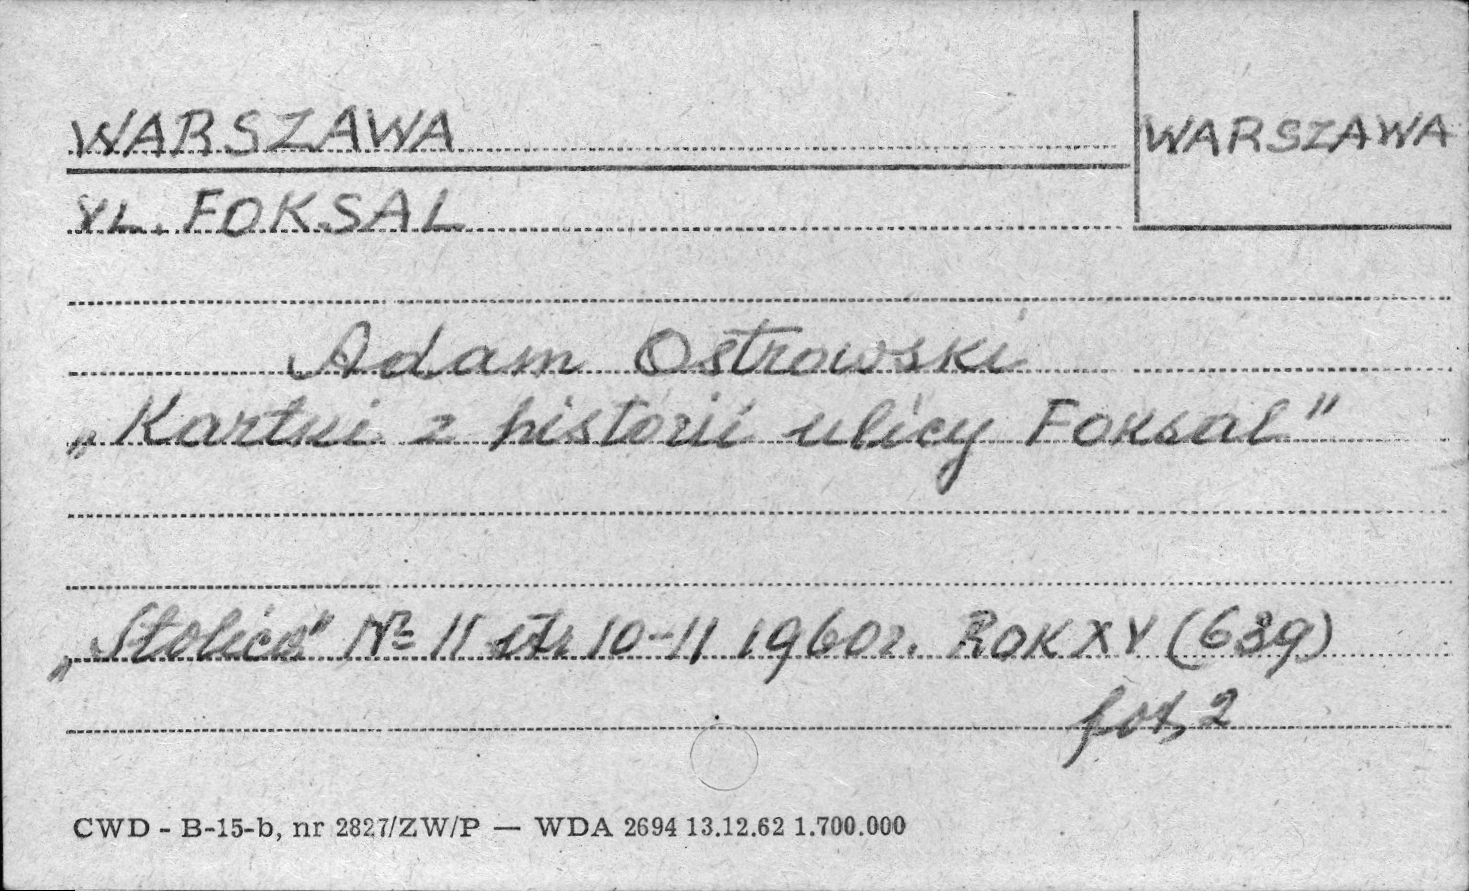 WARSZAWA
WARSZAWA
UL. FOKSAL
Adam Ostrowski
„Kartki z historii ulicy Foksal"
„Stolica" № 11 str 10-11 1960r. ROK XV (639)
fot. 2
CWD - B-15-b, nr 2827/ZW/P — WDA 2694 13.12.62 1.700.000